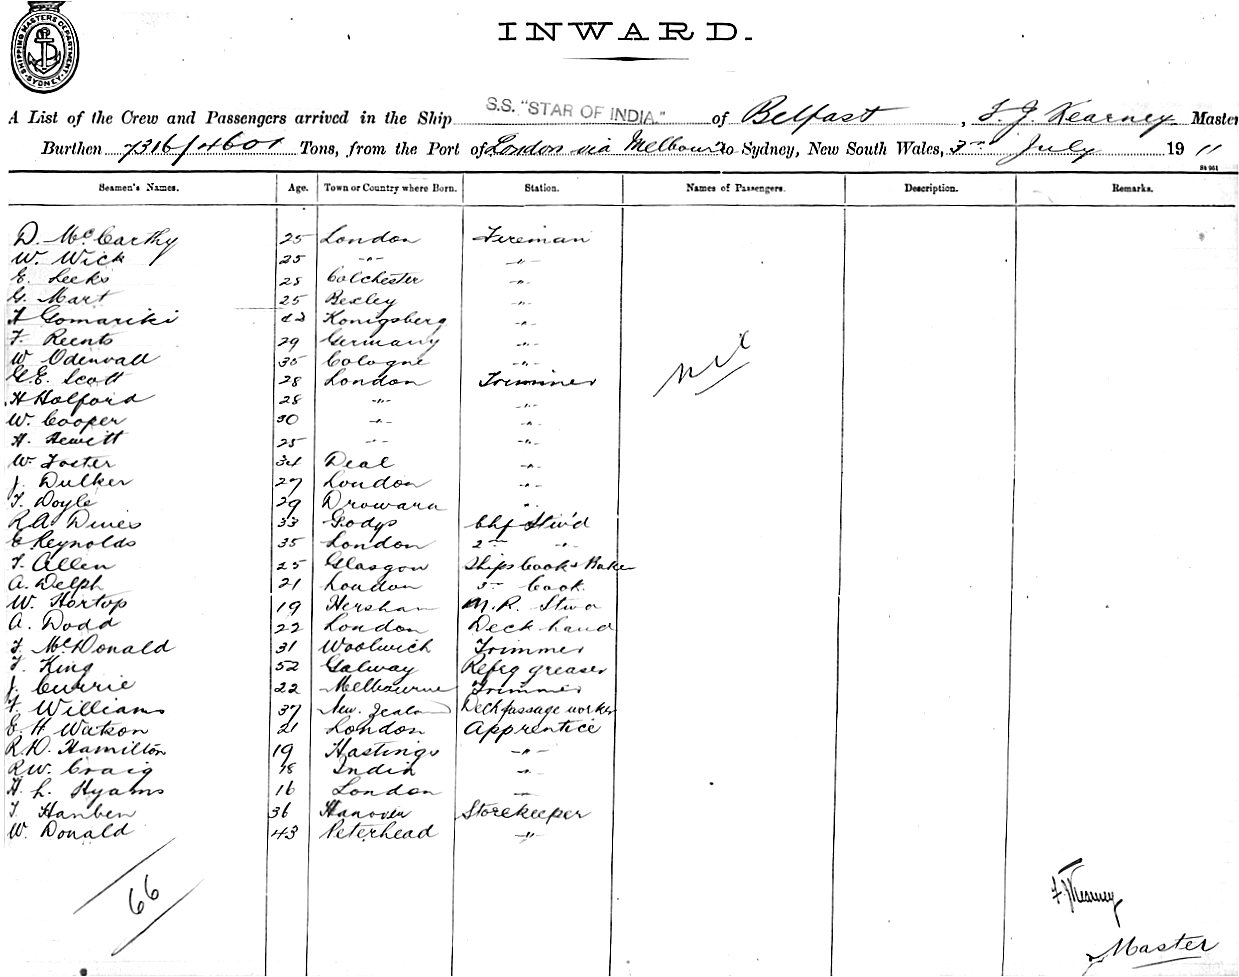 SHIPPING MASTERS DEPARTMENT
SYDNEY
INWARD.
A List of the Crew and Passengers arrived in the Ship S.S. "STAR OF INDIA." of Belfast, F. J. Kearney Master
Burthen 7316/4601 Tons, from the Port of London via Melbour to Sydney, New South Wales, 3rd July 1911
Seamen's Names. Age. Town or Country where Born. Station. Names of Passengers. Description. Remarks.
D. McCarthy 25 London Fireman
W. Wick 25 -"- -"-
E. Leeks 28 Colchester -"-
G. Mart 25 Bexley -"-
A Gomariki Konigsberg -"-
F. Reents 29 Germany -"-
W Odenvall 35 Cologne -"-
G.E. Scott 28 London Trimmer
H Holford 28 -"- -"-
W. Cooper 30 -"- -"-
H. Hewitt 25 -"- -"-
W. Foster 34 Deal -"-
J. Dulker 27 London -"-
T. Doyle 29 Drowara -"-
R.A. Dines 33 Godys Chf Stw'd
E Reynolds 35 London 2nd -"-
T. Allen 25 Glasgow Ships Cook & Baker
A. Delph 21 London 3rd Cook
W. Hortop 19 Hersham M.R. Stwd
A. Dodd 22 London Deck hand
F. McDonald 31 Woolwich Trimmer
T. King 52 Galway Refrg greaser
J. Currie 22 Melbourne Trimmer
F. Williams 37 New Zealand Deck passage worker
E H Watson 21 London Apprentice
R.D. Hamilton 19 Hastings -"-
R.W. Craig 18 India -"-
H. L. Hyams 16 London -"-
T. Hanben 36 Hanover Storekeeper
W. Donald 43 Peterhead -"-
nil
66
F J Kearney
Master